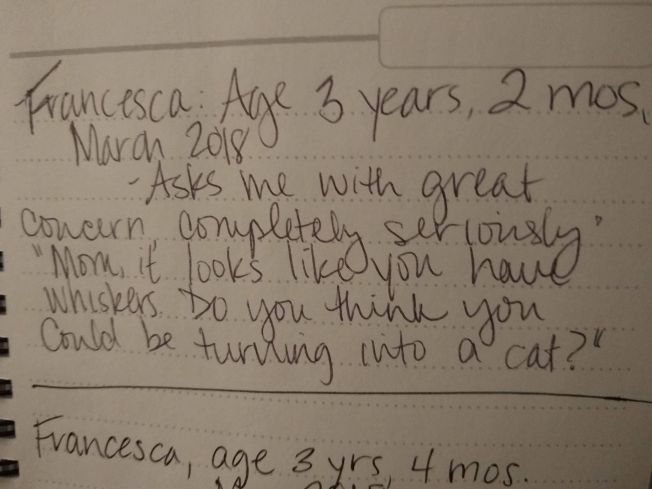 Francesca: Age 3 years, 2 mos,
March 2018
- Asks me with great
concern, completely seriously"
"Mom, it looks like you have
whiskers. Do you think you
Could be turning into a cat?"
Francesca, age 3 yrs, 4 mos.